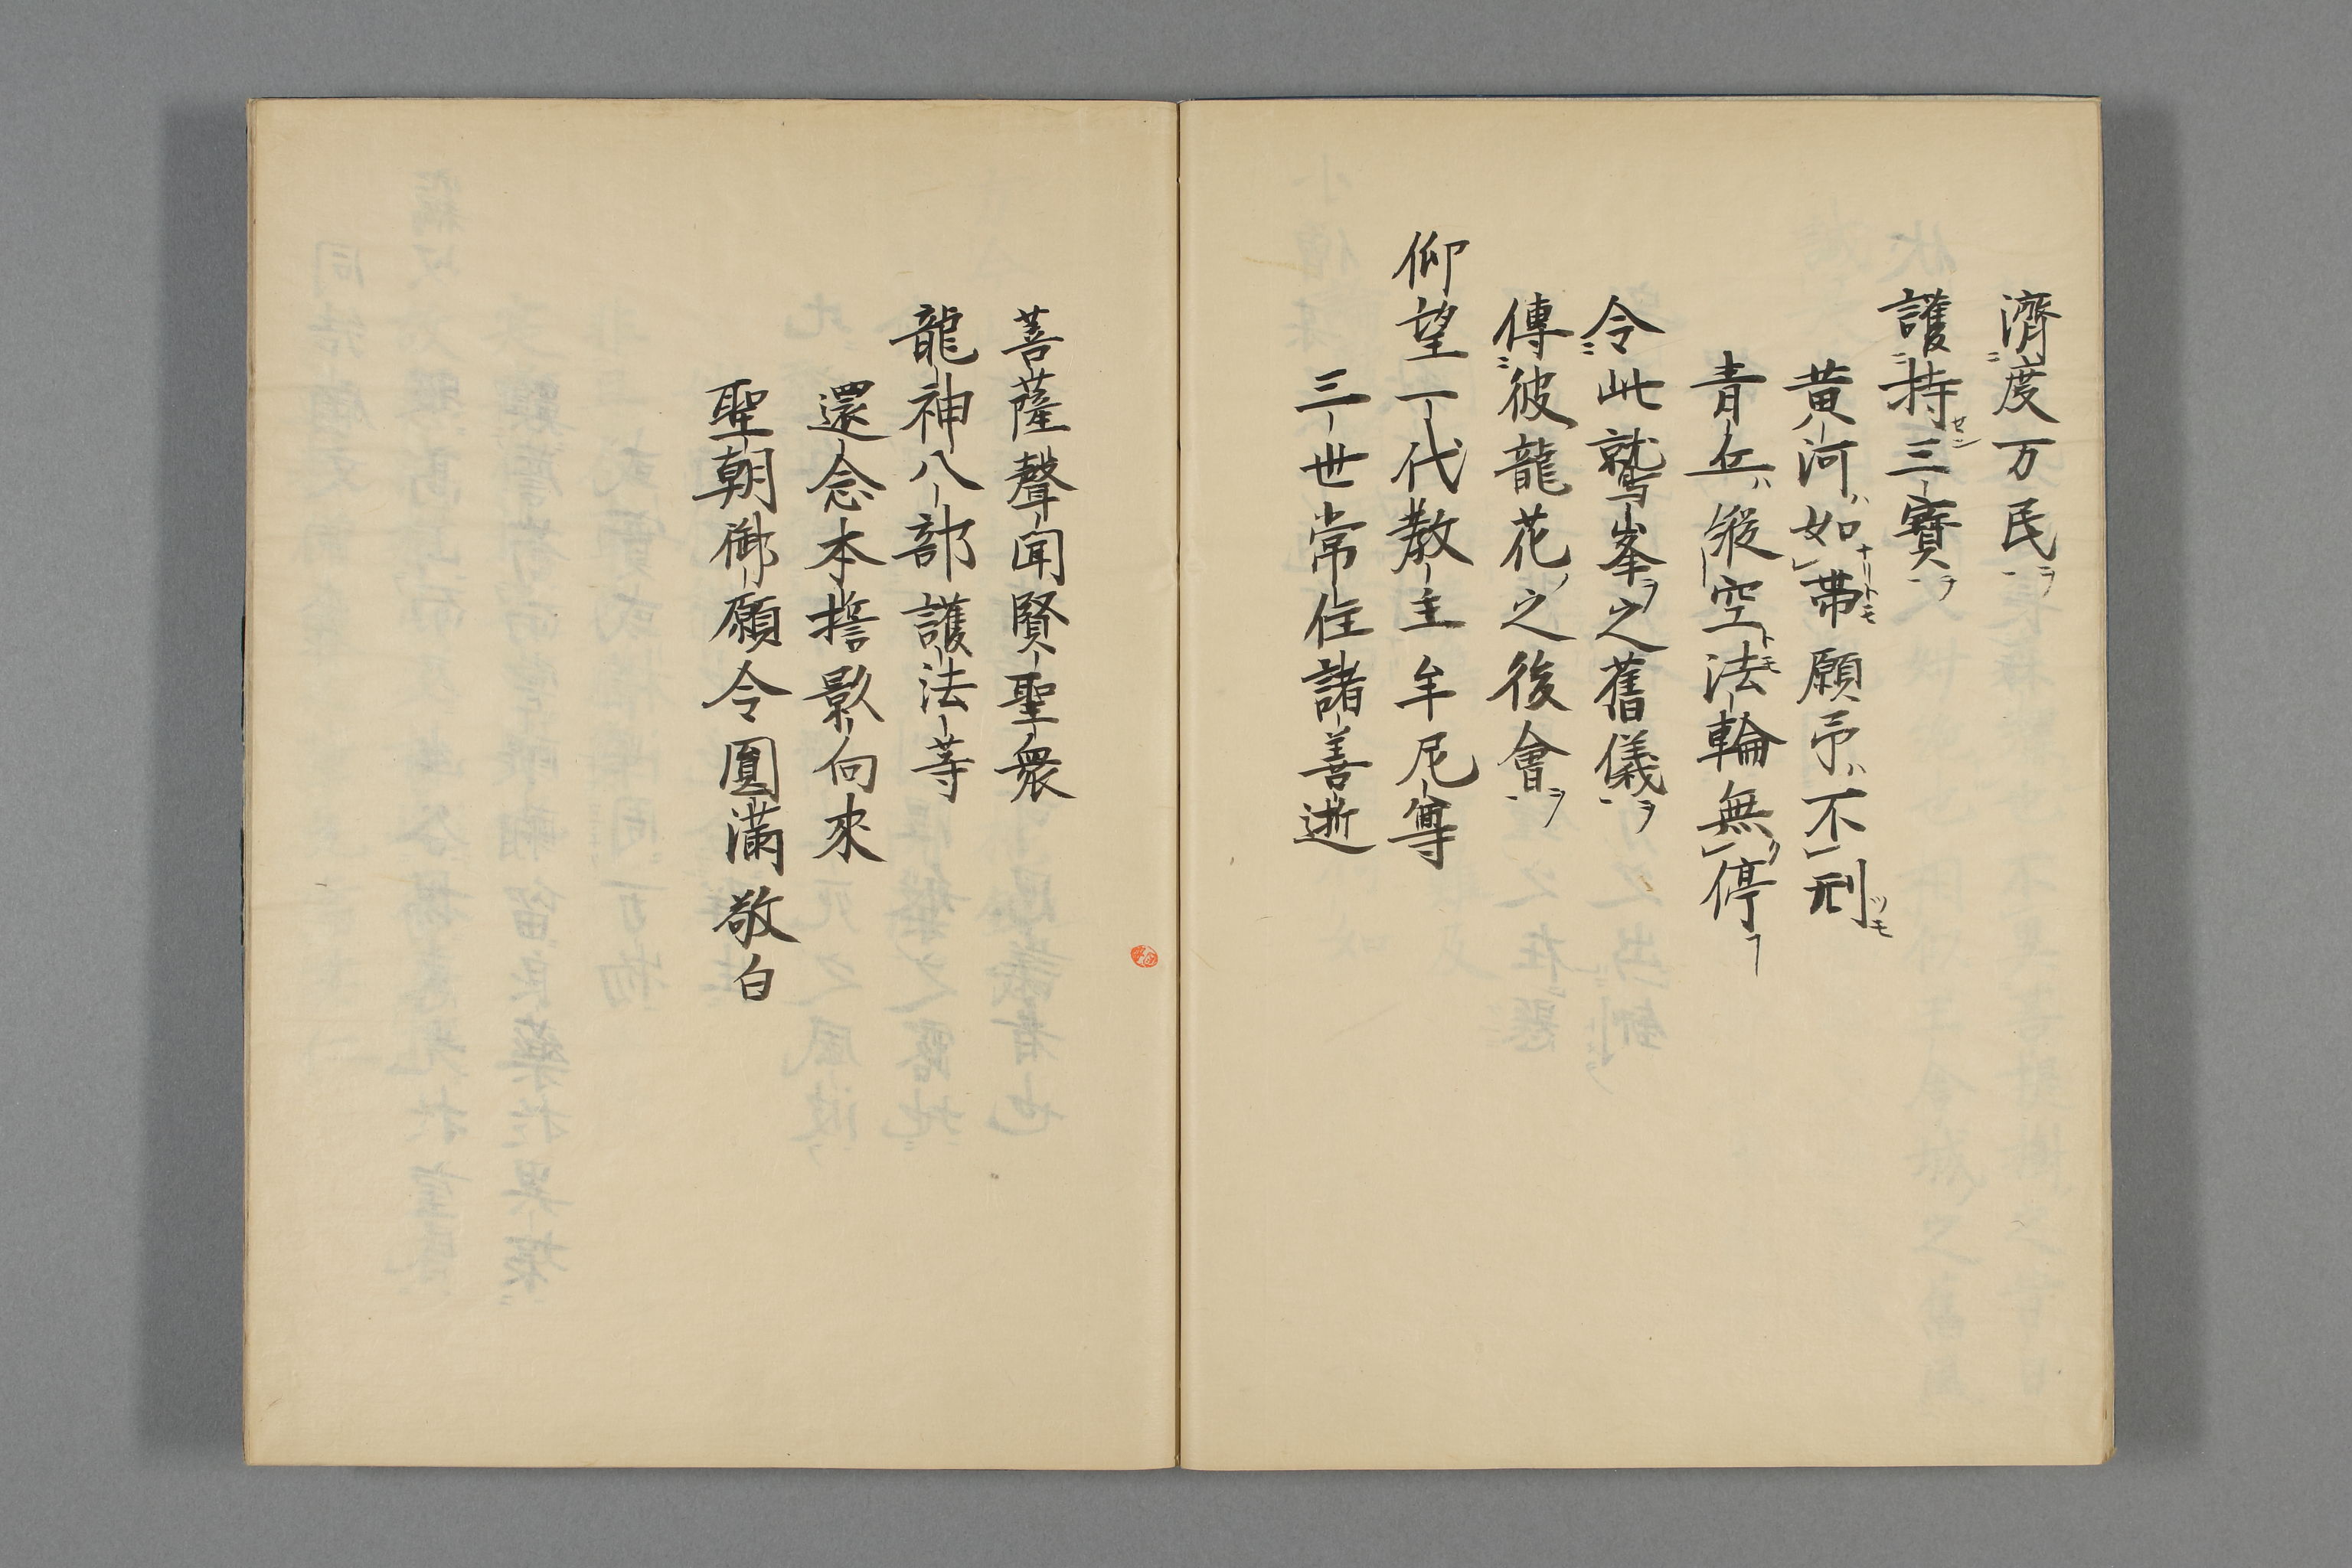 濟度万民
護持三寶
黄河如帶願予不刑
青丘縦空法輪無停
令此鷲峯之舊儀
傳彼龍花之後會
仰望一代教主牟尼尊
三世常住諸善逝
菩薩聲聞賢聖衆
龍神八部護法等
還念本擔影向來
聖朝御願令圓滿敬白